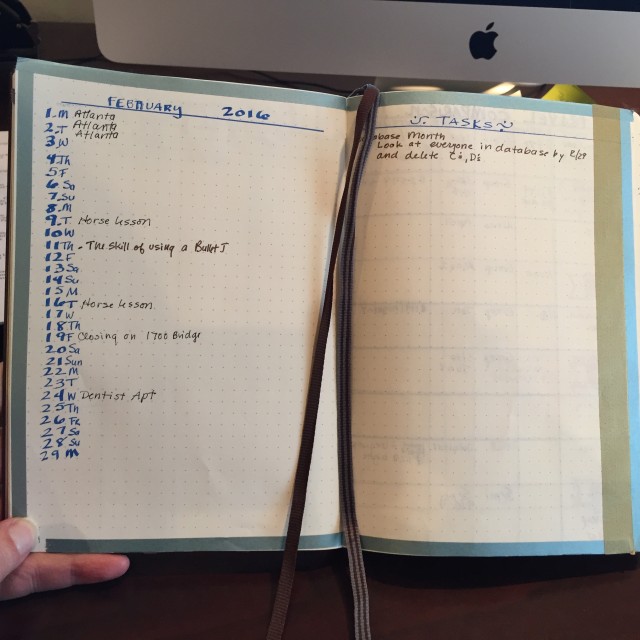 FEBRUARY 2016
1 M Atlanta
2 T Atlanta
3 W Atlanta
4 Th
5 F
6 Sa
7 Su
8 M
9 T Horse Lesson
10 W
11 Th - The skill of using a Bullet J
12 F
13 Sa
14 Su
15 M
16 T Horse Lesson
17 W
18 Th
19 F Closing on 1700 Bridge
20 Sa
21 Sun
22 M
23 T
24 W Dentist Apt
25 Th
26 Fr
27 S
28 Su
29 M
TASKS
abase Month
Look at everyone in database by 2/29
and delete